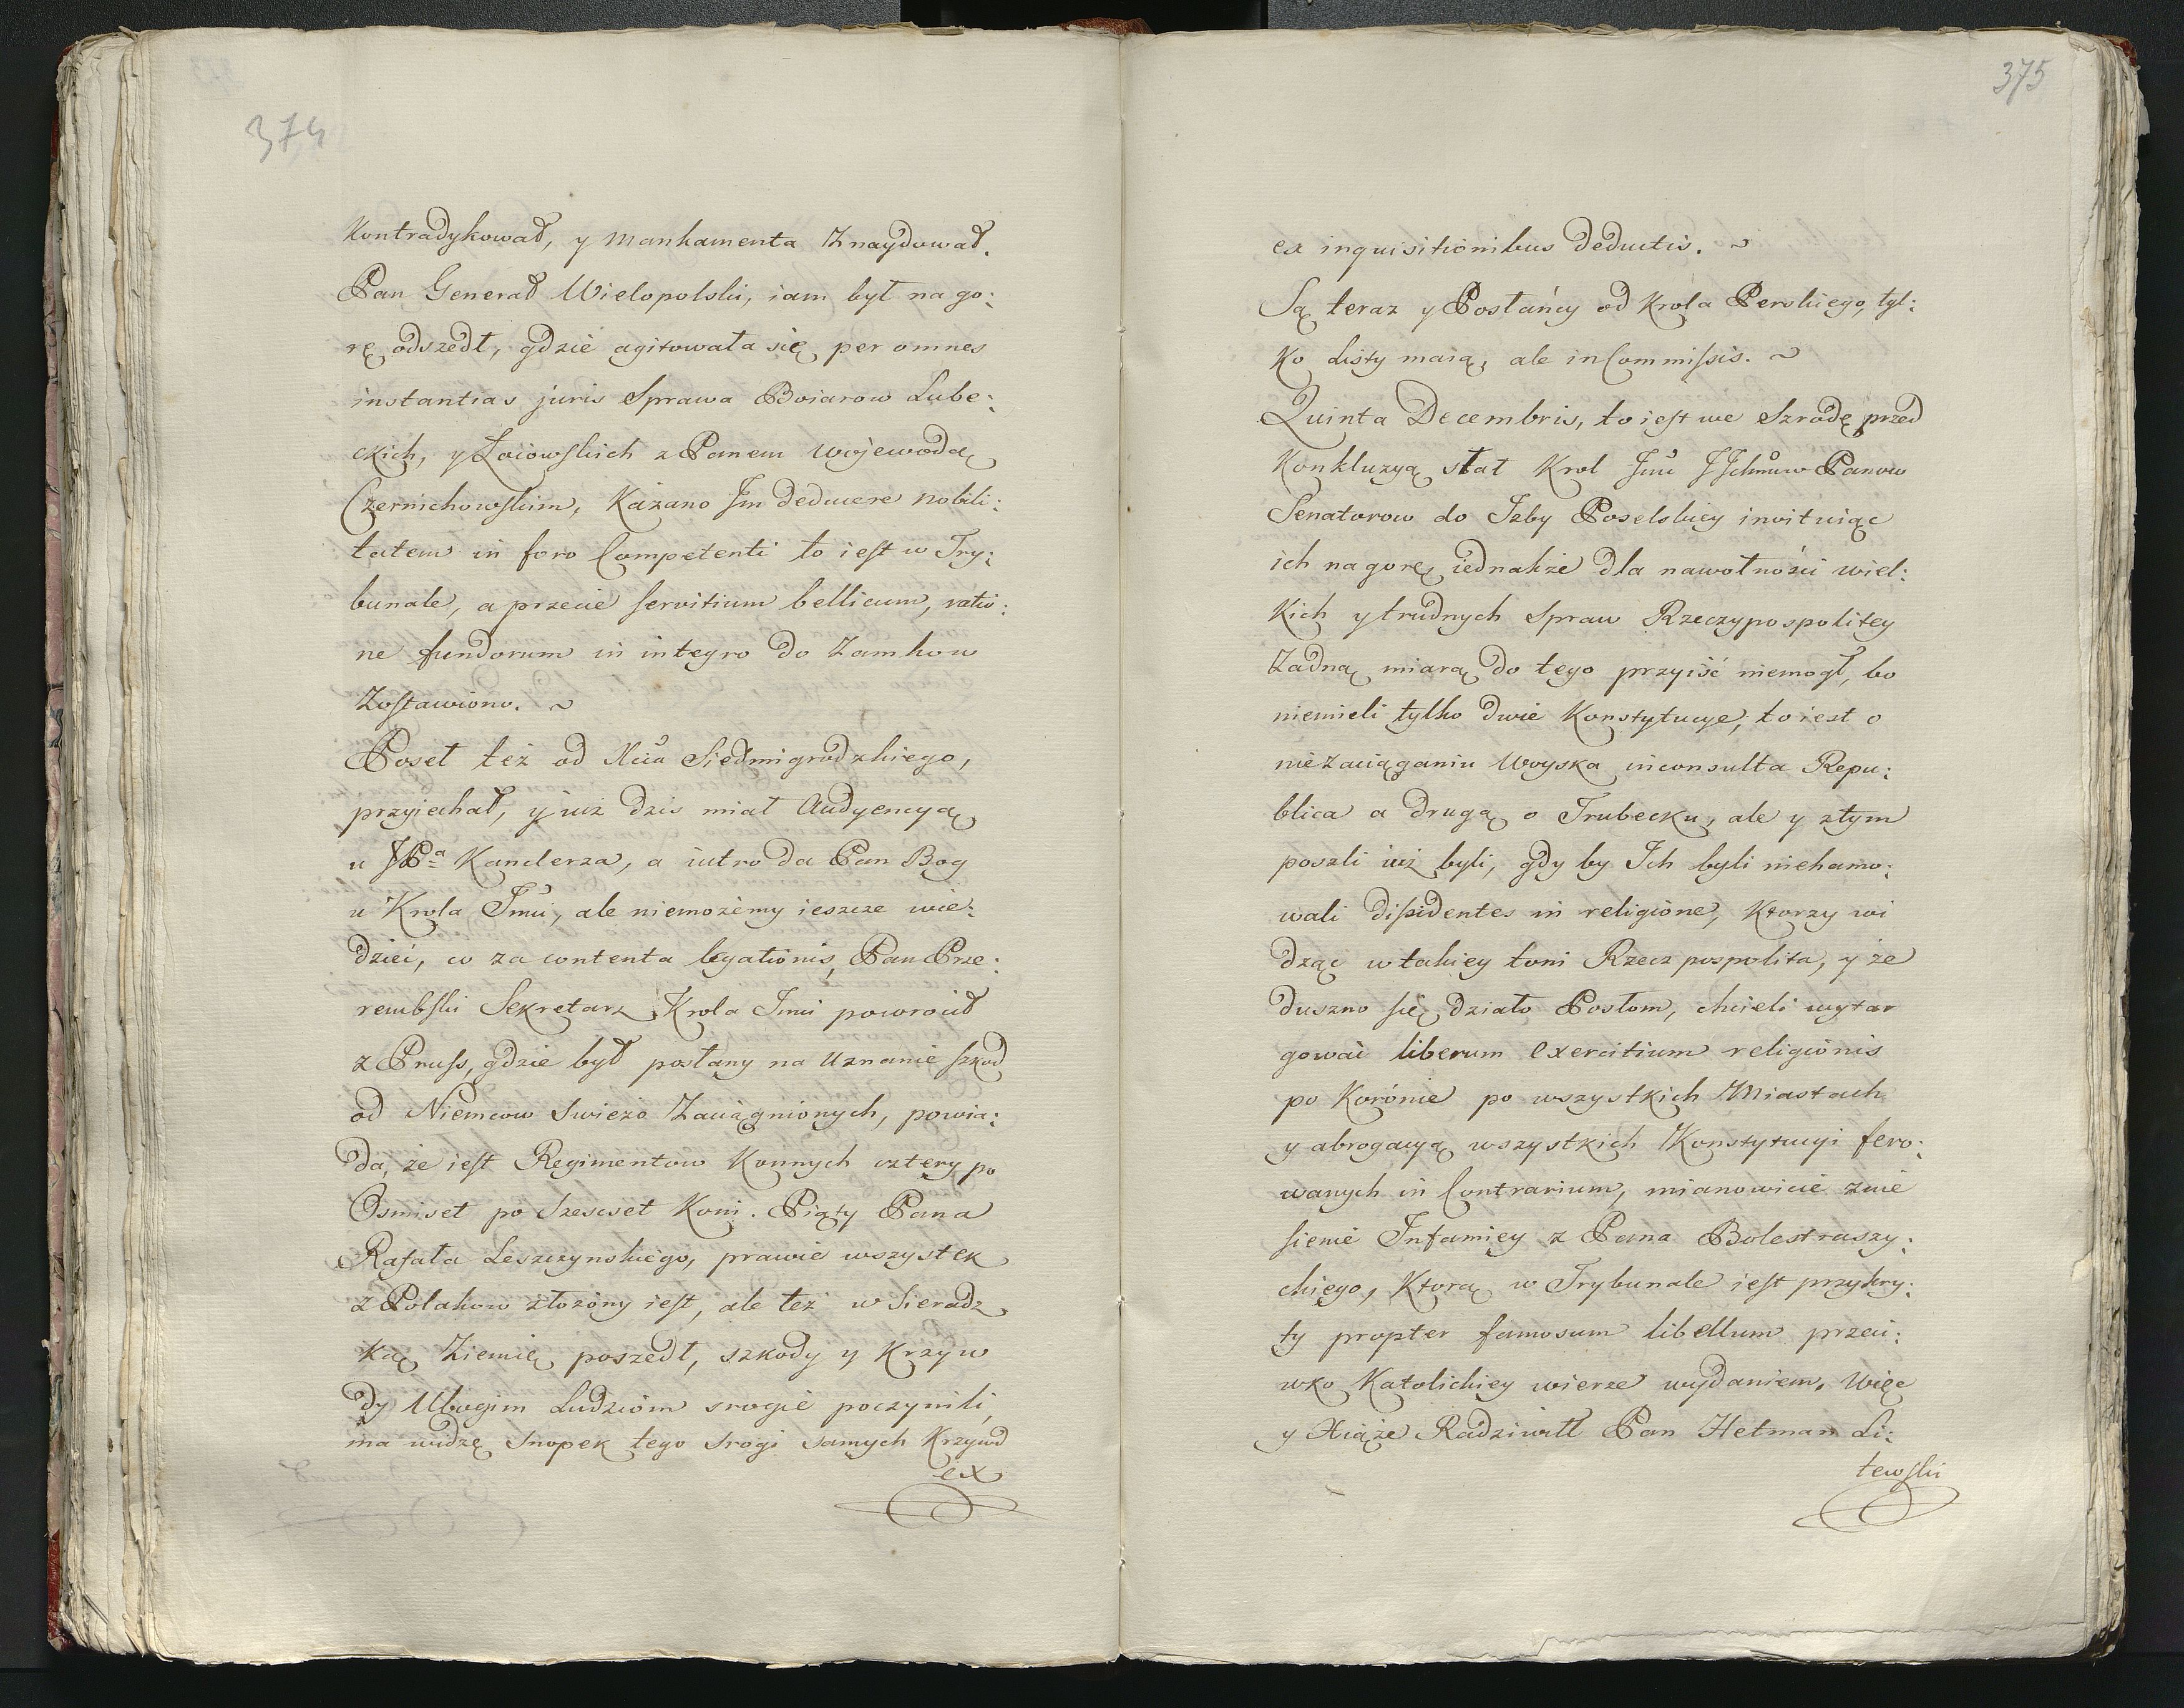 374
Kontradykował, y mankamenta Znaydował.
Pan Generał Wielopolski, iam był na go:
rę odszedł, gdzie agitowała się per omnes
instantias juris Sprawa Boiarow Lube:
ckich, y Łoiowskich z Panem Wojewodą
Czernichowskim, Kazano Jm deducere nobili:
tatem in foro Competenti to iest w Try:
bunale, a przecie servitium bellicum, ratio:
ne fundorum in integro do Zamkow
Zostawiono. ~
Poseł też od Xcia Siedmigrodzkiego,
przyiechał, y iuż dzis miał Audyencyą
u JPa Kanclerza, a iutro da Pan Bog
u Krola Jmci, ale niemożemy ieszcze wie:
dzieć, co za contenta legationis, Pan Prze:
rembski Sekretarz Krola Jmci powrocił
z Pruss, gdzie był posłany na Uznanie szkod
od Niemcow swieżo Zaciągnionych, powia:
da, że iest Regimentow Konnych cztery po
Osmiset po Szescset Koni. Piąty Pana
Rafała Leszczynskiego, prawie wszystek
z Polakow złożony iest, ale też w Sieradz
ką Ziemię poszedł, szkody y Krzyw
dy Ubogim Ludziom srogie poczynili,
ma widzę Snopek tego srogi samych Krzywd
ex
375
ex inquisitionibus deductis. ~
Są teraz y Posłańcy od Krola Perskiego, tyl:
ko Listy maią, ale in Commissis. ~
Quinta Decembris, to iest we Szrodę przed
Konkluzyą słał Krol Jmć JJchmćw Panow
Senatorow do Izby Poselskiey invituiąc
ich na gorę iednakże dla nawołności wiel:
kich y trudnych Spraw Rzeczypospolitey
Żadną miarą do tego przyiść niemogł, bo
niemieli tylko dwie Konstytucye, to iest o
niezaciąganiu Woyska inconsulta Repu:
blica a drugą o Trubecku, ale y z tym
poszli iuż byli, gdy by Ich byli niehamo:
wali dissidentes in religione, Ktorzy wi
dząc w takiey toni Rzecz pospolita, y że
duszno się działo Posłom, chcieli wytar
gować liberum exercitium religionis
po Koronie po wszystkich Miastach
y abrogacyą wszystkich Konstytucyi fero:
wanych in Contrarium, mianowicie znie
sienie Infamiey z Pana Bolestraszy:
ckiego, Ktorą w Trybunale iest przykry:
ty propter famosum libellum przeci:
wko Katolickiey wierze wydaniem. Więc
y Xiąże Radziwiłł Pan Hetman Li:
tewski